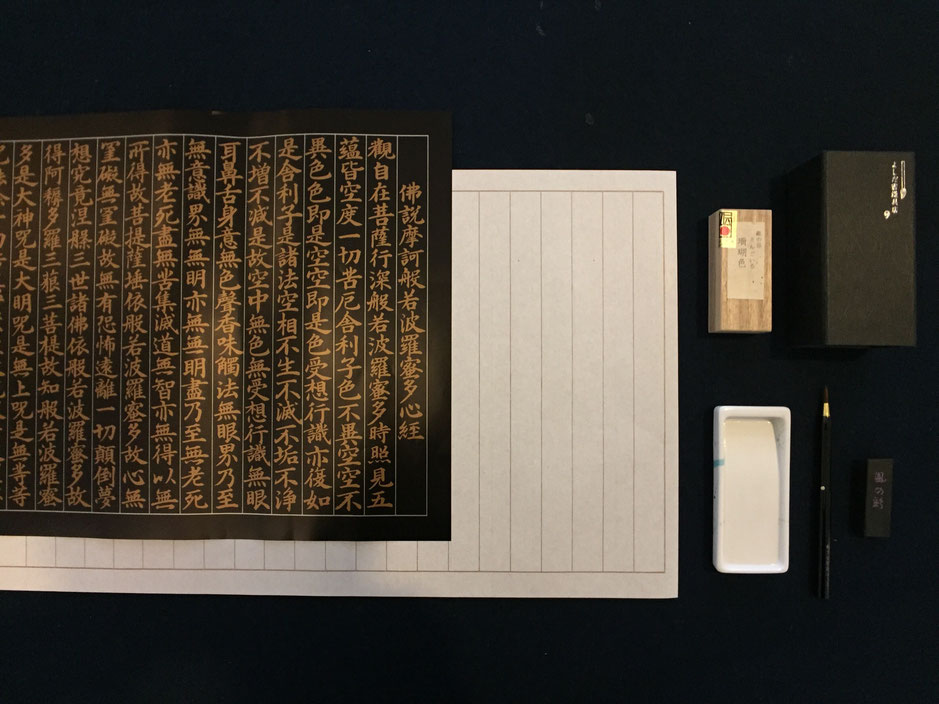 佛説摩訶般若波羅蜜多心経
觀自在菩薩行深般若波羅蜜多時照見五
蘊皆空度一切苦厄舎利子色不異空空不
異色色即是空空即是色受想行識亦復如
是舎利子是諸法空相不生不滅不垢不浄
不増不減是故空中無色無受想行識無眼
耳鼻舌身意無色聲香味觸法無眼界乃至
無意識界無無明亦無無明盡乃至無老死
亦無老死盡無苦集滅道無智亦無得以無
所得故菩提薩埵依般若波羅蜜多故心無
罣礙無罣礙故無有恐怖遠離一切顛倒夢
想究竟涅槃三世諸佛依般若波羅蜜多故
得阿耨多羅三藐三菩提故知般若波羅蜜
多是大神咒是大明咒是無上咒是無等等
珊瑚色